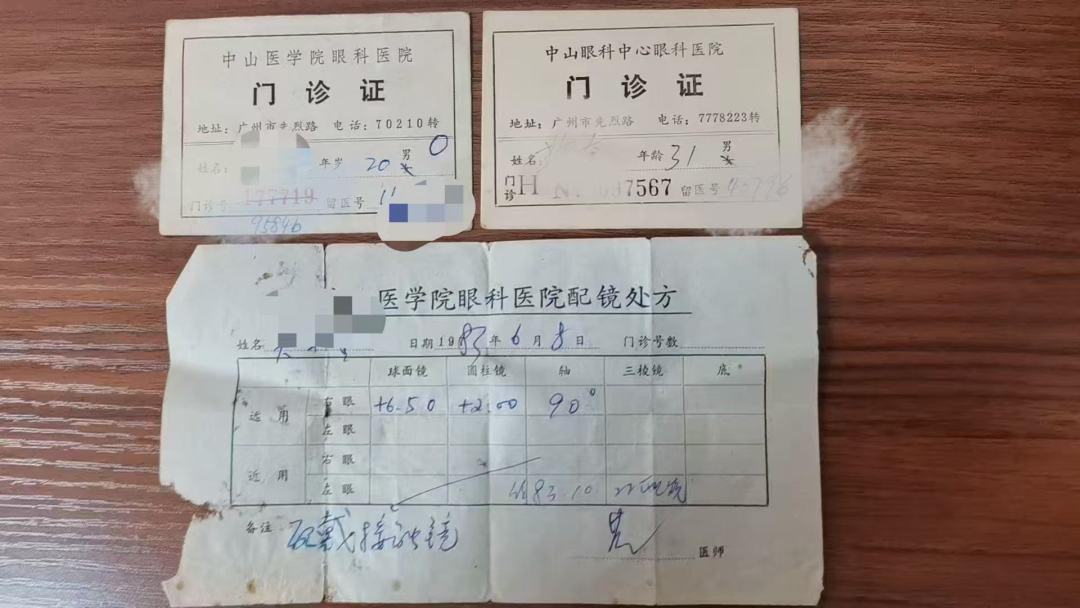 中山医学院眼科医院
门诊证
地址：广州市先烈路 电话：70210转
姓名： 年岁 20 男 0
门诊号 177719 留医号
95846
中山眼科中心眼科医院
门诊证
地址：广州市先烈路 电话：7778223转
姓名： 年龄 31 男
门诊 H 7567 留医号
医学院眼科医院配镜处方
姓名 日期1983年6月8日 门诊号数
球面镜 圆柱镜 轴 三棱镜 底
远用 右眼 +6.50 +2.00 90°
左眼
近用 右眼
左眼
备注： 配戴接触镜
医师